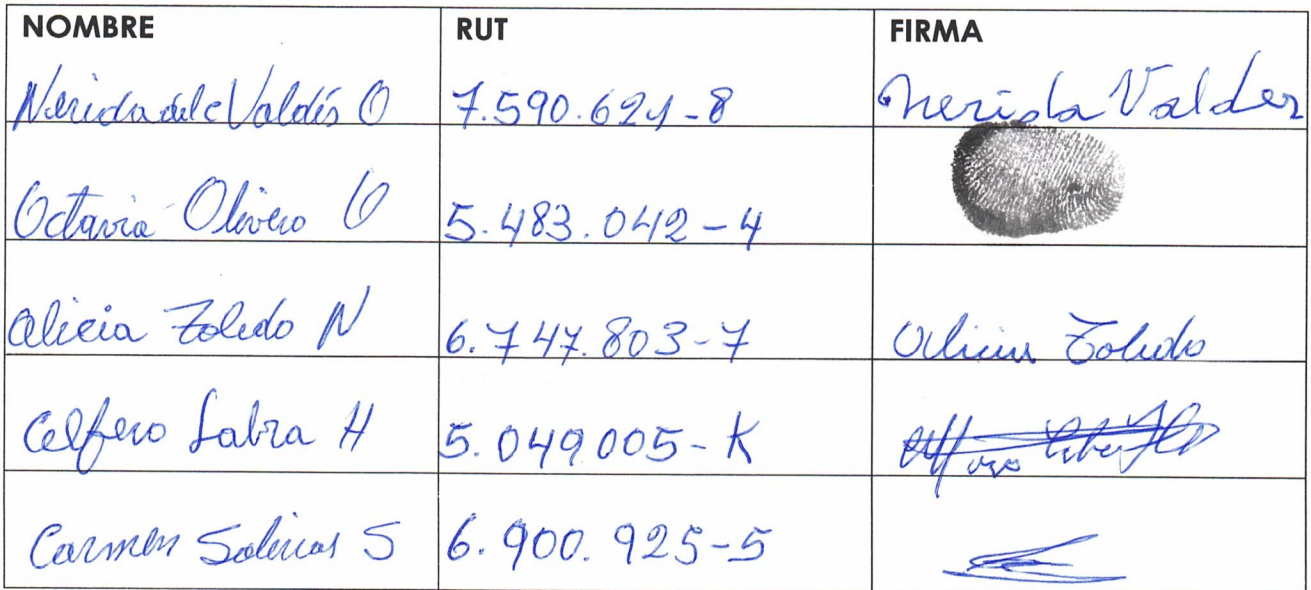 NOMBRE RUT FIRMA
Nerida del c Valdés O 7.590.621-8 Nerida Valdez
Octavia Olivero O 5.483.042-4
Alicia Toledo N 6.747.803-7 Alicia Toledo
Labra H 5.049.005-K
Carmen Salinas S 6.900.925-5